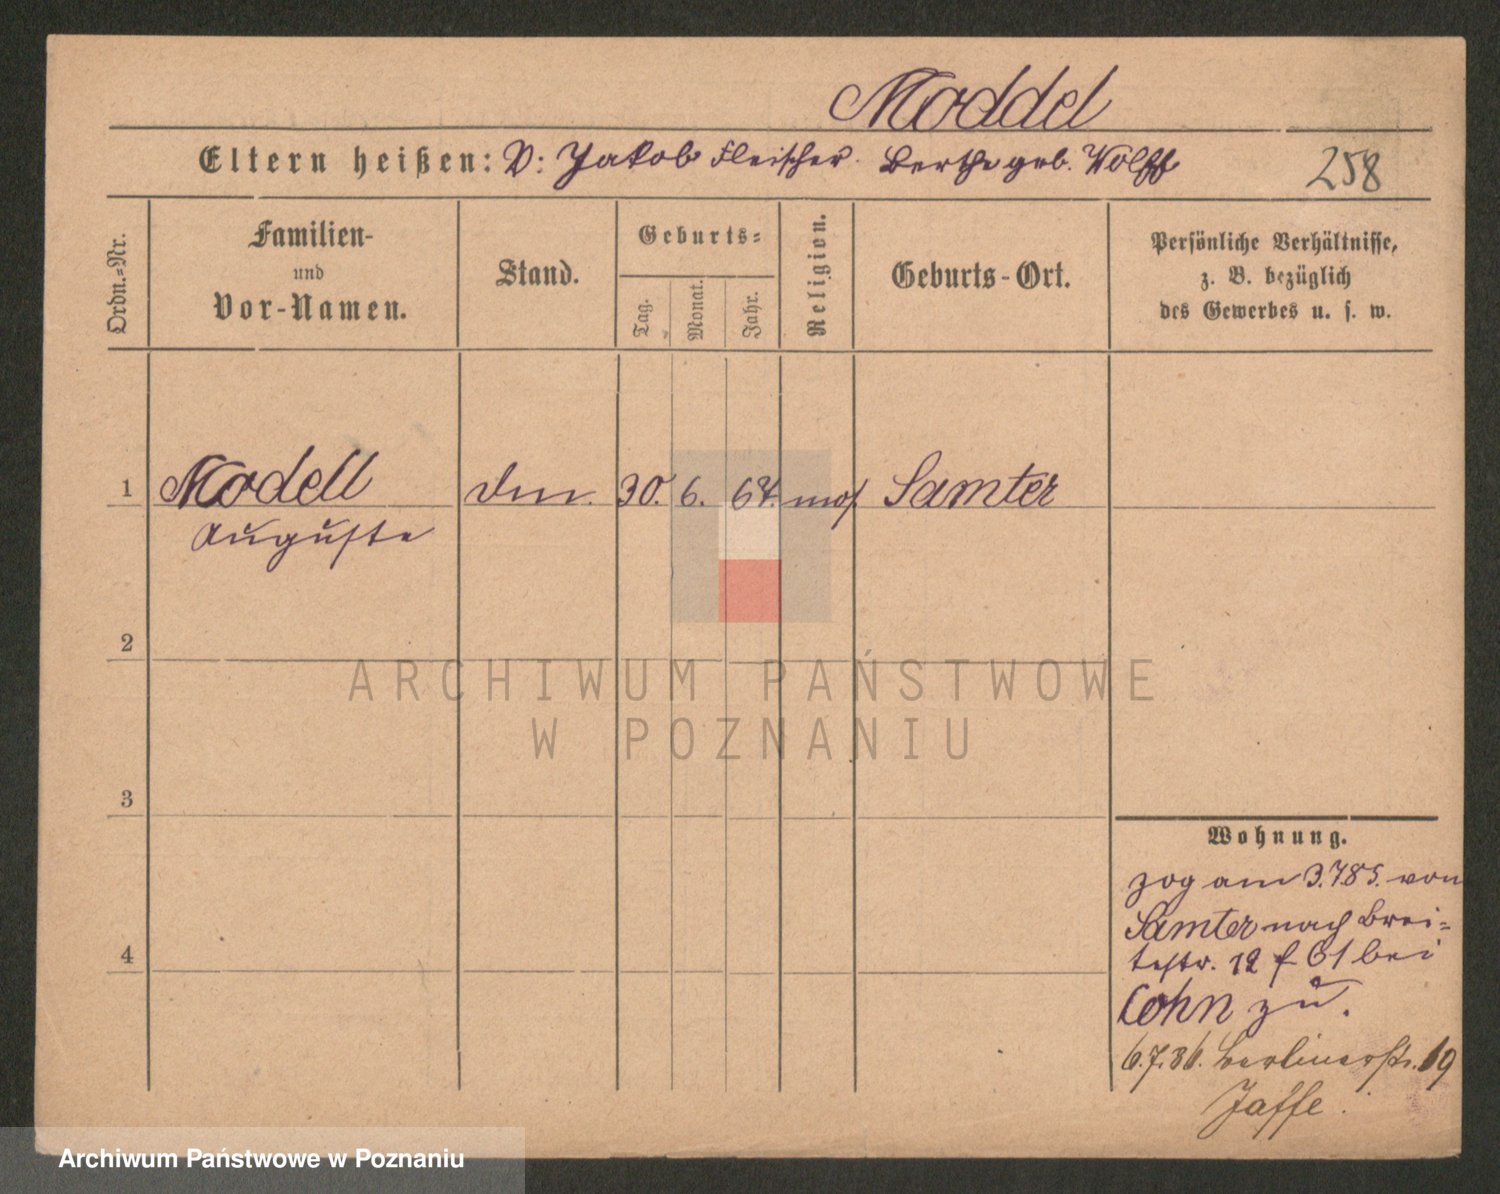 Moddel
Eltern heißen: V: Jakob Fleischer. Berthe geb. Wolff
258
Ordn.-Nr.
Familien-
und
Vor-Namen.
Stand.
Geburts-
Tag.
Monat.
Jahr.
Religion.
Geburts-Ort.
Persönliche Verhältnisse,
z. B. bezüglich
des Gewerbes u. s. w.
1 Modell 30. 6. 64. mos. Samter
Auguste
2
3
4
Wohnung.
zog am 3.7.85. von
Samter nach Brei-
testr. 12 bei
Cohn zu.
6.7.86. Berlinerstr. 19
Jaffe.
ARCHIWUM PAŃSTWOWE
W POZNANIU
Archiwum Państwowe w Poznaniu